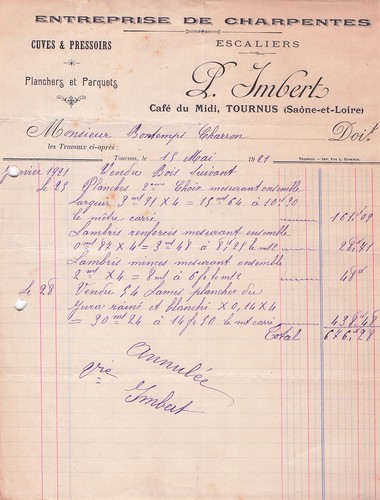 ENTREPRISE DE CHARPENTES
CUVES & PRESSOIRS
ESCALIERS
Planchers et Parquets
P. Imbert
Café du Midi, TOURNUS (Saône-et-Loire)
Monsieur Bontemps Charron Doit
les Travaux ci-après:
Tournus, le 15 Mai 1921
Janvier 1921 Vendu Bois Suivant
Le 25 Planches 2ème Choix mesurant ensemble
Largeur 3 m 91 X 4 = 15 m 64 à 10 f 30
le mètre carré 161,09
Lambris renforcés mesurant ensemble
0 m 87 X 4 = 3 m 48 à 8 f 25 le m2 28,71
Lambris minces mesurant ensemble
2 m X 4 = 8 m à 6 f le m2 48
Le 28 Vendu 54 Lames plancher du
Jura rainé et blanchi X 0,14 X 4
= 30 m 24 à 14 f 50 le mt carré 438,48
Total 676,28
Annulée
Imbert